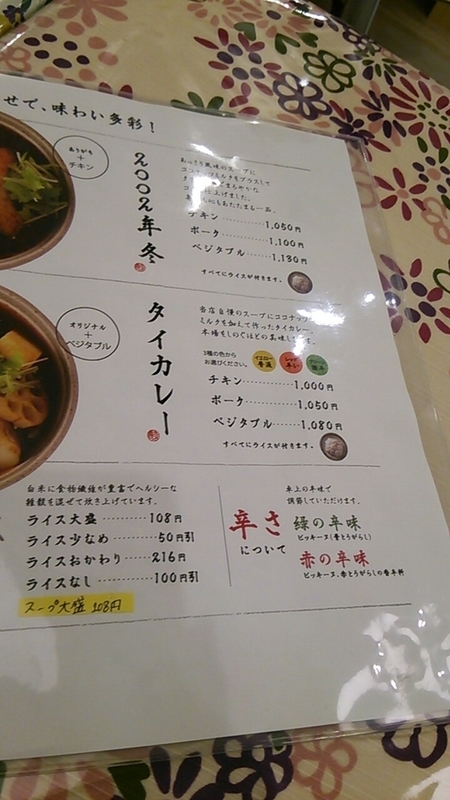 せで、味わい多彩！
ありがも
＋
チキン
2002年冬
あっさり風味のスープに
ココナッツミルクをプラスして
まろやかな
仕上げました。
もあたたまる一品。
チキン............1,050円
ポーク............1,100円
ベジタブル............1,130円
すべてにライスが付きます。
オリジナル
＋
ベジタブル
タイカレー
当店自慢のスープにココナッツ
ミルクを加えて作ったタイカレー。
本場をしのぐほどの美味しさです。
3種の色から
お選びください。
イエロー
レッド
辛い
グリーン
チキン............1,000円
ポーク............1,050円
ベジタブル............1,080円
すべてにライスが付きます。
白米に食物繊維が豊富でヘルシーな
雑穀を混ぜて炊き上げています。
ライス大盛............108円
ライス少なめ............50円引
ライスおかわり............216円
ライスなし............100円引
スープ大盛 108円
辛さ
について
卓上の辛味で
調節していただけます。
緑の辛味
ピッキーヌ(青とうがらし)
赤の辛味
ピッキーヌ、赤とうがらしの香辛料